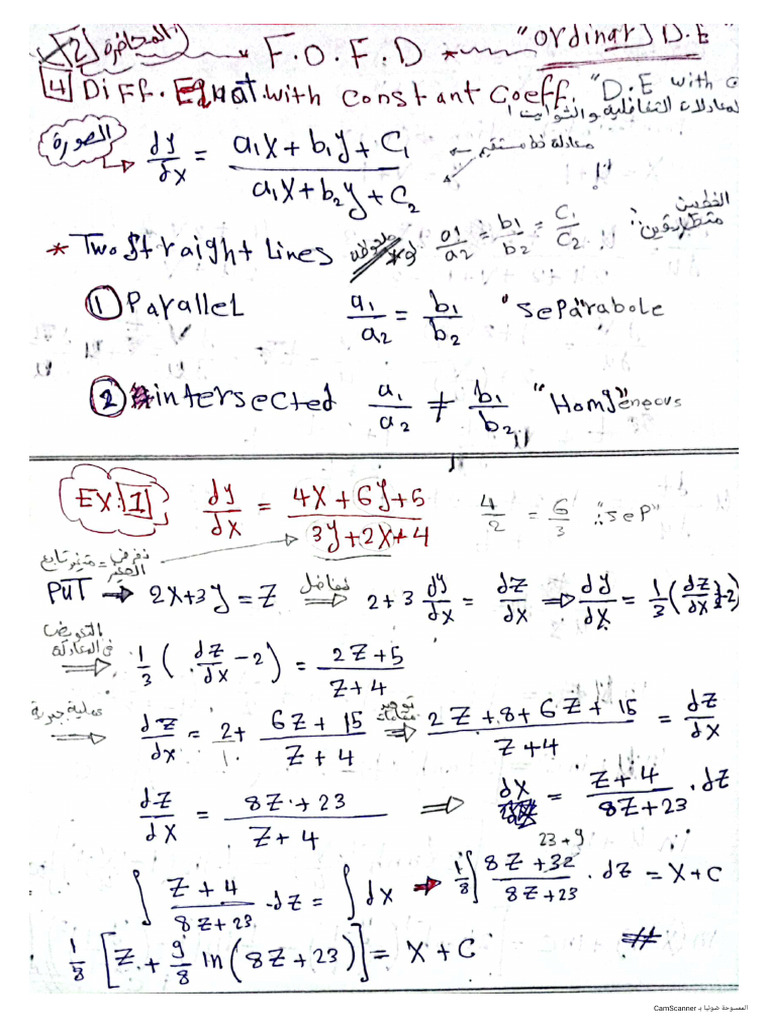 2 المحاضرة F.O.F.D "Ordinary D.E"
4 Diff. Equat. with constant Coeff. "D.E with c
معادلات التفاضلية والثوابت
الصورة dy/dx = (a₁x + b₁y + C₁)/(a₁x + b₂y + C₂) معادلة خط مستقيم
* Two straight Lines a₁/a₂ = b₁/b₂ = C₁/C₂ الخطين متطابقين
① Parallel a₁/a₂ = b₁/b₂ "separabole"
② intersected a₁/a₂ ≠ b₁/b₂ "Homgeneous"
EX: 1 dy/dx = (4x + 6y + 5)/(3y + 2x + 4) 4/2 = 6/3 ∴ "sep"
PUT → 2x + 3y = z ⇒ 2 + 3 dy/dx = dz/dx ⇒ dy/dx = 1/3 (dz/dx - 2)
التعويض فى المعادلة ⇒ 1/3 (dz/dx - 2) = (2z + 5)/(z + 4)
عملية جبرية ⇒ dz/dx = 2 + (6z + 15)/(z + 4) توحيد مقامات ⇒ (2z + 8 + 6z + 15)/(z + 4) = dz/dx
dz/dx = (8z + 23)/(z + 4) ⇒ dx = (z + 4)/(8z + 23) . dz
23 + 9
∫ (z + 4)/(8z + 23) . dz = ∫ dx → 1/8 ∫ (8z + 32)/(8z + 23) . dz = x + C
1/8 [z + 9/8 ln(8z + 23)] = x + C #
الممسوحة ضوئيا بـ CamScanner